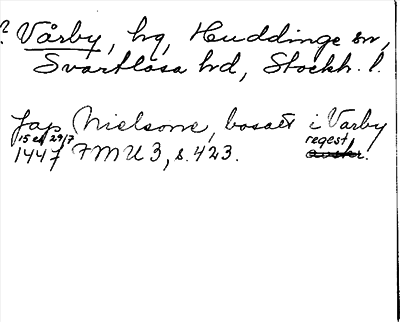 ? Vårby, hg, Huddinge sn,
Svartlösa hd, Stockh. l.
Jap Nielsone, bosatt i Varby
15 el 29/7 regest
1447 FMU 3, s. 423. avskr.